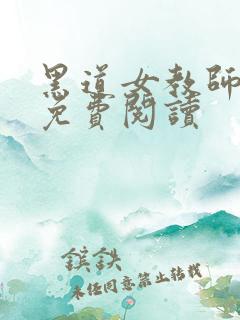 黑道女教師
免費閱讀
鎮鉄
未經同意禁止轉載